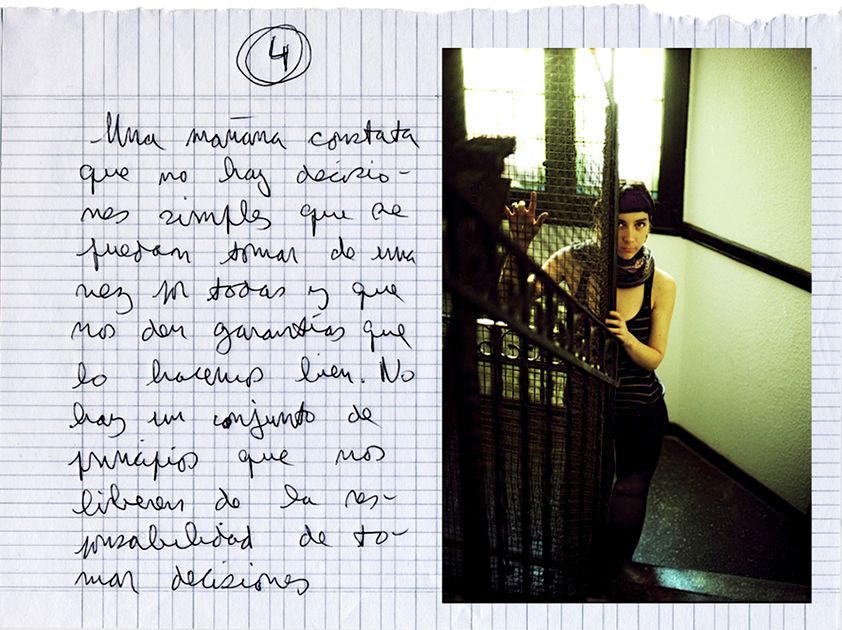 4
Una mañana constata
que no hay decisio-
nes simples que se
puedan tomar de una
vez por todas y que
nos den garantías que
lo hacemos bien. No
hay un conjunto de
principios que nos
liberen de la res-
ponsabilidad de to-
mar decisiones